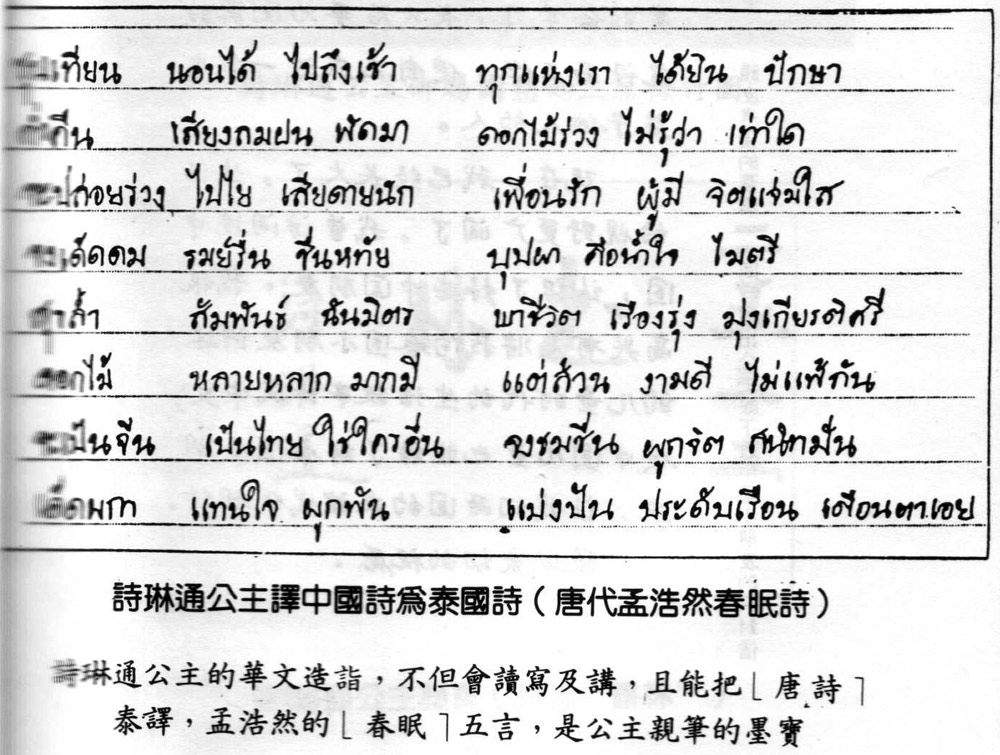 เทียน นอนได้ ไปถึงเช้า ทุกแห่งเรา ได้ยิน ปักษา
คืน เสียงลมฝน พัดมา ดอกไม้ร่วง ไม่รู้ว่า เท่าใด
จะปล่อยร่วง ไปไย เสียดายนัก เพื่อนรัก ผู้มี จิตแจ่มใส
จงเด็ดดม รมย์รื่น ชื่นหทัย บุปผา คือน้ำใจ ไมตรี
สัมพันธ์ ฉันมิตร พาชีวิต เรืองรุ่ง มุ่งเกียรติศรี
ดอกไม้ หลายหลาก มากมี แต่ล้วน งามดี ไม่แพ้กัน
จะเป็นจีน เป็นไทย ใช่ใครอื่น จงชมชื่น ผูกจิต สนิทมั่น
เด็ดผกา แทนใจ ผูกพัน แบ่งปัน ประดับเรือน เตือนตาเอย
詩琳通公主譯中國詩爲泰國詩（唐代孟浩然春眠詩）
詩琳通公主的華文造詣，不但會讀寫及講，且能把⌊唐詩⌉
泰譯，孟浩然的⌊春眠⌉五言，是公主親筆的墨寶